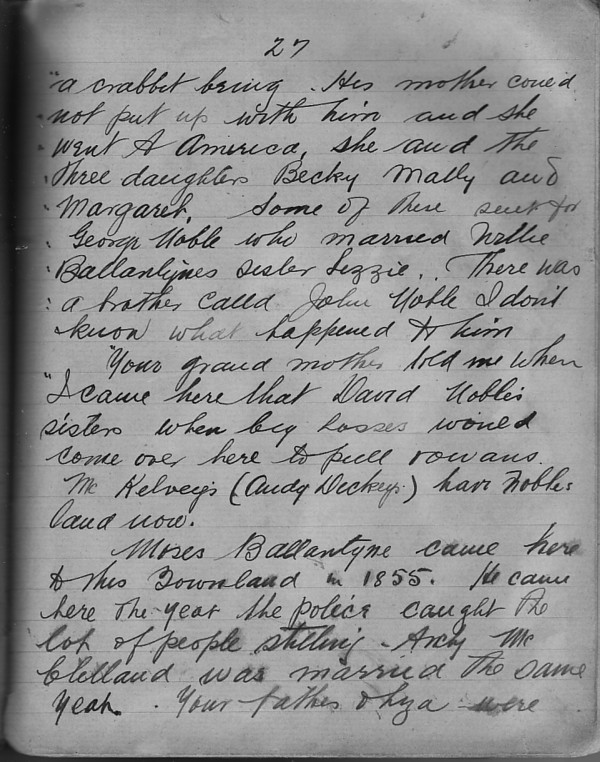 27
"a crabbit being. His mother could
not put up with him and she
went to America, she and the
three daughters Becky Mally and
Margaret. Some of these sent for
George Noble who married Willie
Ballantynes sister Lizzie.. There was
a brother called John Noble I don't
know what happened to him
"Your grand mother told me when
"I came here that David Nobles
sisters when big lasses would
come over here to pull rowans.
Mc Kelveys (Andy Dickeys) have Nobles
land now.
Moses Ballantyne came here
to this Townland in 1855. He came
here the year the police caught the
lot of people stilling. Andy Mc
Clelland was married the same
year. Your father & Liza were